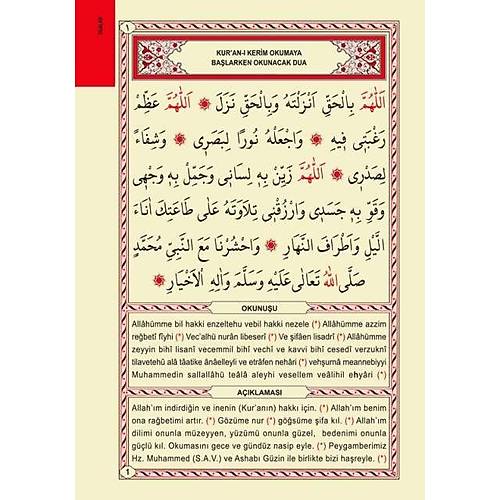 DUALAR
١
KUR'AN-I KERİM OKUMAYA
BAŞLARKEN OKUNACAK DUA
اَللّٰهُمَّ بِالْحَقِّ اَنْزَلْتَهُ وَبِالْحَقِّ نَزَلَ ۞ اَللّٰهُمَّ عَظِّمْ
رَغْبَتِى فِيهِ ۞ وَاجْعَلْهُ نُورًا لِبَصَرِى ۞ وَشِفَاءً
لِصَدْرِى ۞ اَللّٰهُمَّ زَيِّنْ بِهِ لِسَانِى وَجَمِّلْ بِهِ وَجْهِى
وَقَوِّ بِهِ جَسَدِى وَارْزُقْنِى تِلَاوَتَهُ عَلٰى طَاعَتِكَ اٰنَاءَ
الَّيْلِ وَاَطْرَافَ النَّهَارِ ۞ وَاحْشُرْنَا مَعَ النَّبِىِّ مُحَمَّدٍ
صَلَّى اللّٰهُ تَعَالٰى عَلَيْهِ وَسَلَّمَ وَاٰلِهِ الْاَخْيَارِ ۞
OKUNUŞU
Allâhümme bil hakki enzeltehu vebil hakki nezele (*) Allâhümme azzim
reğbetî fîyhi (*) Vec'alhü nurân libeserî (*) Ve şifâen lisadrî (*) Allâhümme
zeyyin bihî lisanî vecemmil bihî vechî ve kavvi bihî cesedî verzuknî
tilavetehû alâ tâatike ânaelleyli ve etrâfen nehâri (*) vehşurnâ meannebiyyi
Muhammedin sallallâhü teâlâ aleyhi vesellem veâlihil ehyâri (*)
AÇIKLAMASI
Allah'ım indirdiğin ve inenin (Kur'anın) hakkı için. (*) Allah'ım benim
ona rağbetimi artır. (*) Gözüme nur (*) göğsüme şifa kıl. (*) Allah'ım
dilimi onunla müzeyyen, yüzümü onunla güzel, bedenimi onunla
güçlü kıl. Okumasını gece ve gündüz nasip eyle. (*) Peygamberimiz
Hz. Muhammed (S.A.V.) ve Ashabı Güzin ile birlikte bizi haşreyle. (*)
1